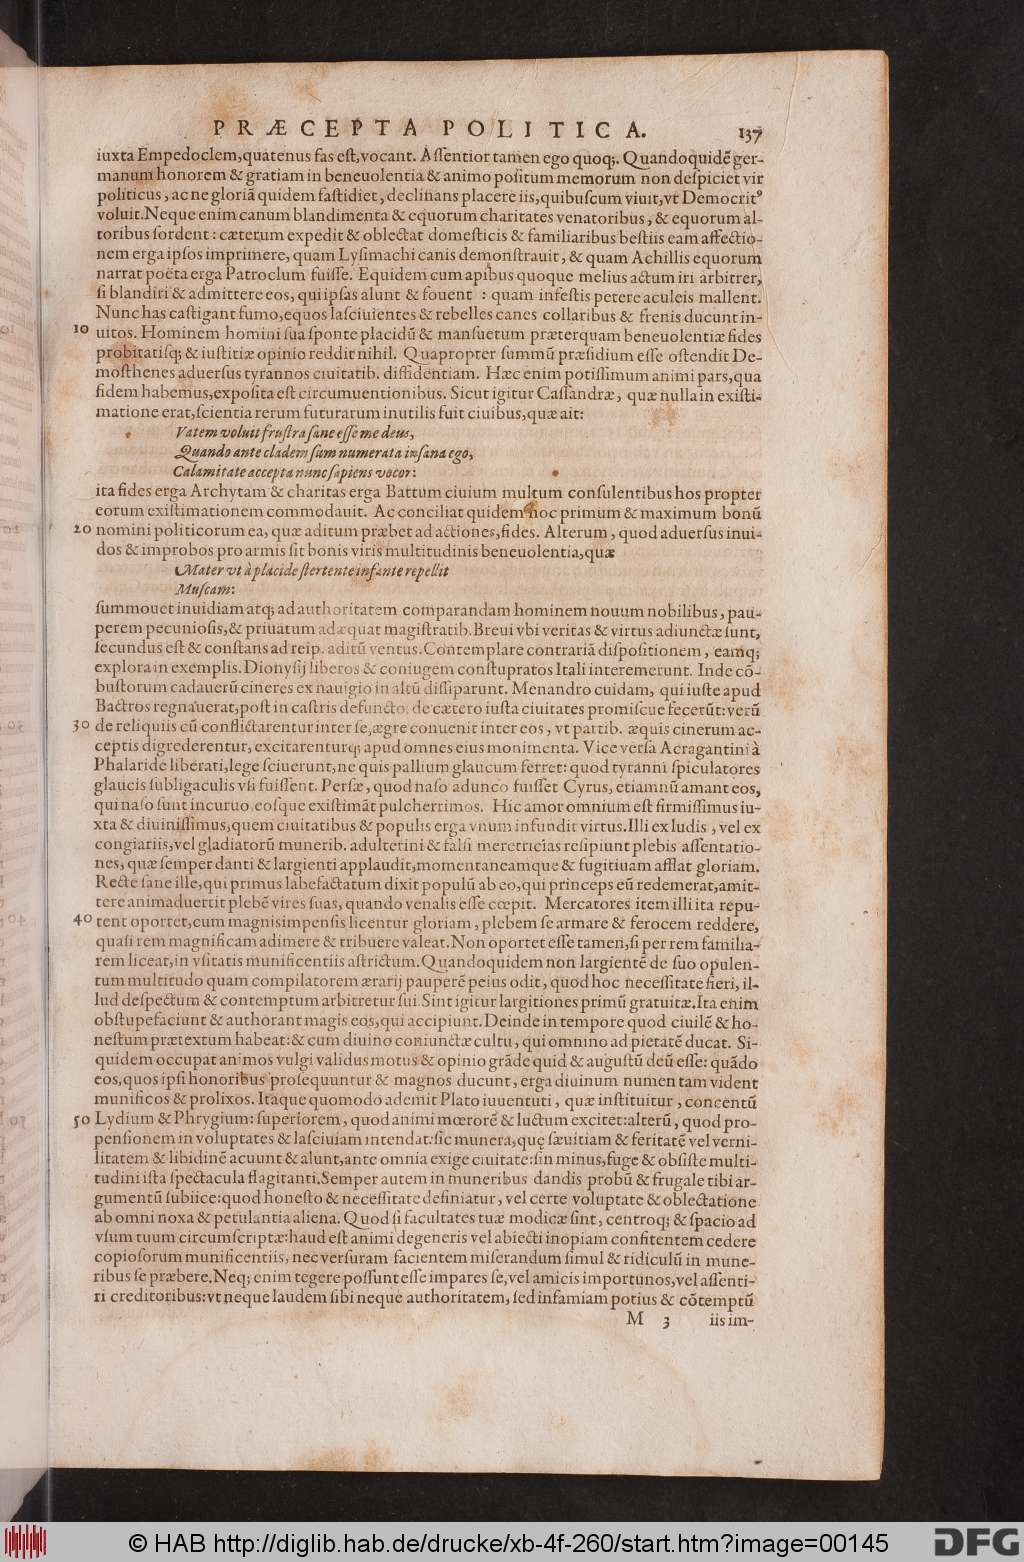 PRÆCEPTA POLITICA. 137
iuxta Empedoclem, quatenus fas eſt, vocant. Aſſentior tamen ego quoq;. Quandoquidē ger-
manum honorem & gratiam in beneuolentia & animo poſitum memorum non deſpiciet vir
politicus, ac ne gloriā quidem faſtidiet, declinans placere iis, quibuſcum viuit, vt Democritꝰ
voluit. Neque enim canum blandimenta & equorum charitates venatoribus, & equorum al-
toribus ſordent: cæterum expedit & oblectat domeſticis & familiaribus beſtiis eam affectio-
nem erga ipſos imprimere, quam Lyſimachi canis demonſtrauit, & quam Achillis equorum
narrat poëta erga Patroclum fuiſſe. Equidem cum apibus quoque melius actum iri arbitrer,
ſi blandiri & admittere eos, qui ipſas alunt & fouent : quam infeſtis petere aculeis mallent.
Nunc has caſtigant fumo, equos laſciuientes & rebelles canes collaribus & frenis ducunt in-
10 uitos. Hominem homini ſua ſponte placidū & manſuetum præterquam beneuolentiæ fides
probitatiſq; & iuſtitiæ opinio reddit nihil. Quapropter ſummū præſidium eſſe oſtendit De-
moſthenes aduerſus tyrannos ciuitatib. diffidentiam. Hæc enim potiſſimum animi pars, qua
fidem habemus, expoſita eſt circumuentionibus. Sicut igitur Caſſandræ, quæ nulla in exiſti-
matione erat, ſcientia rerum futurarum inutilis fuit ciuibus, quæ ait:
Vatem voluit fruſtra ſane eſſe me deus,
Quando ante cladem ſum numerata inſana ego,
Calamitate accepta nunc ſapiens vocor:
ita fides erga Archytam & charitas erga Battum ciuium multum conſulentibus hos propter
eorum exiſtimationem commodauit. Ac conciliat quidem hoc primum & maximum bonū
20 nomini politicorum ea, quæ aditum præbet ad actiones, fides. Alterum, quod aduerſus inui-
dos & improbos pro armis ſit bonis viris multitudinis beneuolentia, quæ
Mater vt à placide ſtertente infante repellit
Muſcam:
ſummouet inuidiam atq; ad authoritatem comparandam hominem nouum nobilibus, pau-
perem pecunioſis, & priuatum adæquat magiſtratib. Breui vbi veritas & virtus adiunctæ ſunt,
ſecundus eſt & conſtans ad reip. aditū ventus. Contemplare contrariā diſpoſitionem, eamq;
explora in exemplis. Dionyſij liberos & coniugem conſtupratos Itali interemerunt. Inde cō-
buſtorum cadauerū cineres ex nauigio in altū diſſiparunt. Menandro cuidam, qui iuſte apud
Bactros regnauerat, poſt in caſtris defuncto, de cætero iuſta ciuitates promiſcue fecerūt: verū
30 de reliquiis cū conflictarentur inter ſe, ægre conuenit inter eos, vt partib. æquis cinerum ac-
ceptis digrederentur, excitarenturq; apud omnes eius monimenta. Vice verſa Acragantini à
Phalaride liberati, lege ſciuerunt, ne quis pallium glaucum ferret: quod tyranni ſpiculatores
glaucis ſubligaculis vſi fuiſſent. Perſæ, quod naſo adunco fuiſſet Cyrus, etiamnū amant eos,
qui naſo ſunt incuruo, eoſque exiſtimāt pulcherrimos. Hic amor omnium eſt firmiſſimus iu-
xta & diuiniſſimus, quem ciuitatibus & populis erga vnum infundit virtus. Illi ex ludis, vel ex
congiariis, vel gladiatorū munerib. adulterini & falſi meretricias reſipiunt plebis aſſentatio-
nes, quæ ſemper danti & largienti applaudit, momentaneamque & fugitiuam afflat gloriam.
Recte ſane ille, qui primus labefactatum dixit populū ab eo, qui princeps eū redemerat, amit-
tere animaduertit plebē vires ſuas, quando venalis eſſe cœpit. Mercatores item illi ita repu-
40 tent oportet, cum magnis impenſis licentur gloriam, plebem ſe armare & ferocem reddere,
quaſi rem magnificam adimere & tribuere valeat. Non oportet eſſe tamen, ſi per rem familia-
rem liceat, in vſitatis munificentiis aſtrictum. Quandoquidem non largientē de ſuo opulen-
tum multitudo quam compilatorem ærarij pauperē peius odit, quod hoc neceſſitate fieri, il-
lud deſpectum & contemptum arbitretur ſui. Sint igitur largitiones primū gratuitæ. Ita enim
obſtupefaciunt & authorant magis eos, qui accipiunt. Deinde in tempore quod ciuilē & ho-
neſtum prætextum habeat: & cum diuino coniunctæ cultu, qui omnino ad pietatē ducat. Si-
quidem occupat animos vulgi validus motus & opinio grāde quid & auguſtū deū eſſe: quādo
eos, quos ipſi honoribus proſequuntur & magnos ducunt, erga diuinum numen tam vident
munificos & prolixos. Itaque quomodo ademit Plato iuuentuti, quæ inſtituitur, concentū
50 Lydium & Phrygium: ſuperiorem, quod animi mœrorē & luctum excitet: alterū, quod pro-
penſionem in voluptates & laſciuiam intendat: ſic munera, quę ſæuitiam & feritatē vel verni-
litatem & libidinē acuunt & alunt, ante omnia exige ciuitate: ſin minus, fuge & obſiſte multi-
tudini iſta ſpectacula flagitanti. Semper autem in muneribus dandis probū & frugale tibi ar-
gumentū ſubiice: quod honeſto & neceſſitate definiatur, vel certe voluptate & oblectatione
ab omni noxa & petulantia aliena. Quod ſi facultates tuæ modicæ ſint, centroq; & ſpacio ad
vſum tuum circumſcriptæ: haud eſt animi degeneris vel abiecti inopiam confitentem cedere
copioſorum munificentiis, nec verſuram facientem miſerandum ſimul & ridiculū in mune-
ribus ſe præbere. Neq; enim tegere poſſunt eſſe impares ſe, vel amicis importunos, vel aſſenti-
ri creditoribus: vt neque laudem ſibi neque authoritatem, ſed infamiam potius & cōtemptū
M 3 iis im-
© HAB http://diglib.hab.de/drucke/xb-4f-260/start.htm?image=00145
DFG